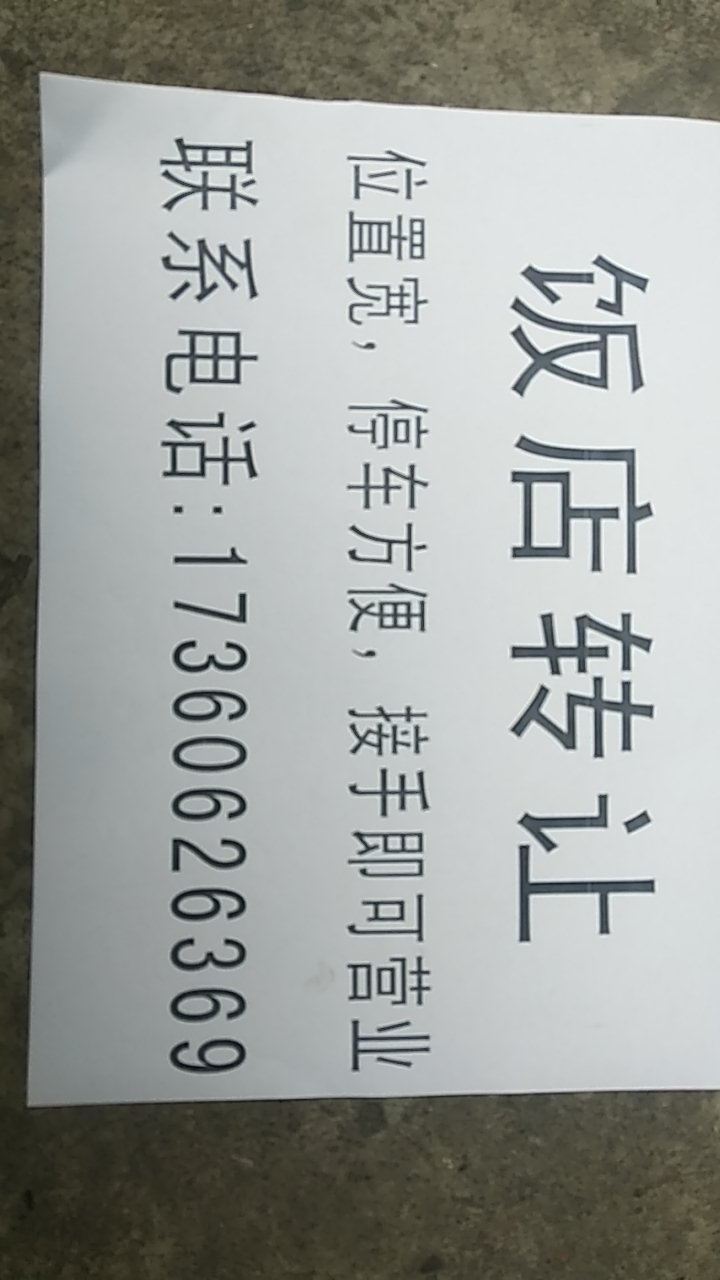 饭店转让
位置宽，停车方便，接手即可营业
联系电话:17360626369